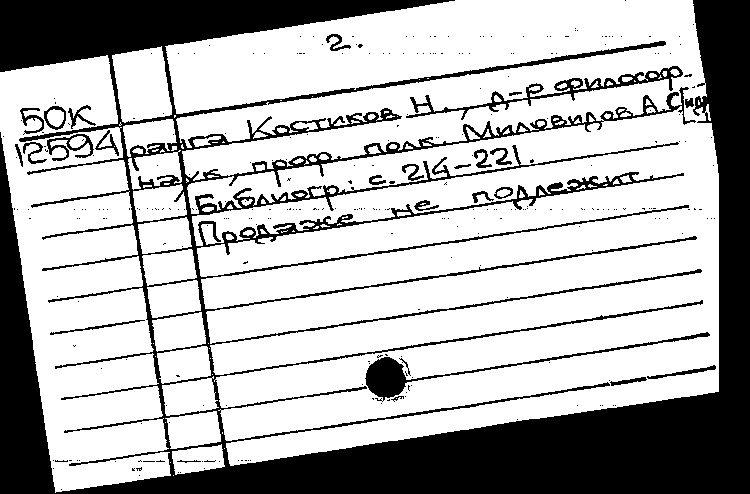 2.
50К
12594
ранга Костиков Н., д-р философ.
наук, проф. полк. Миловидов А.С[и др
Библиогр.: с. 214-221.
Продаже не подлежит.